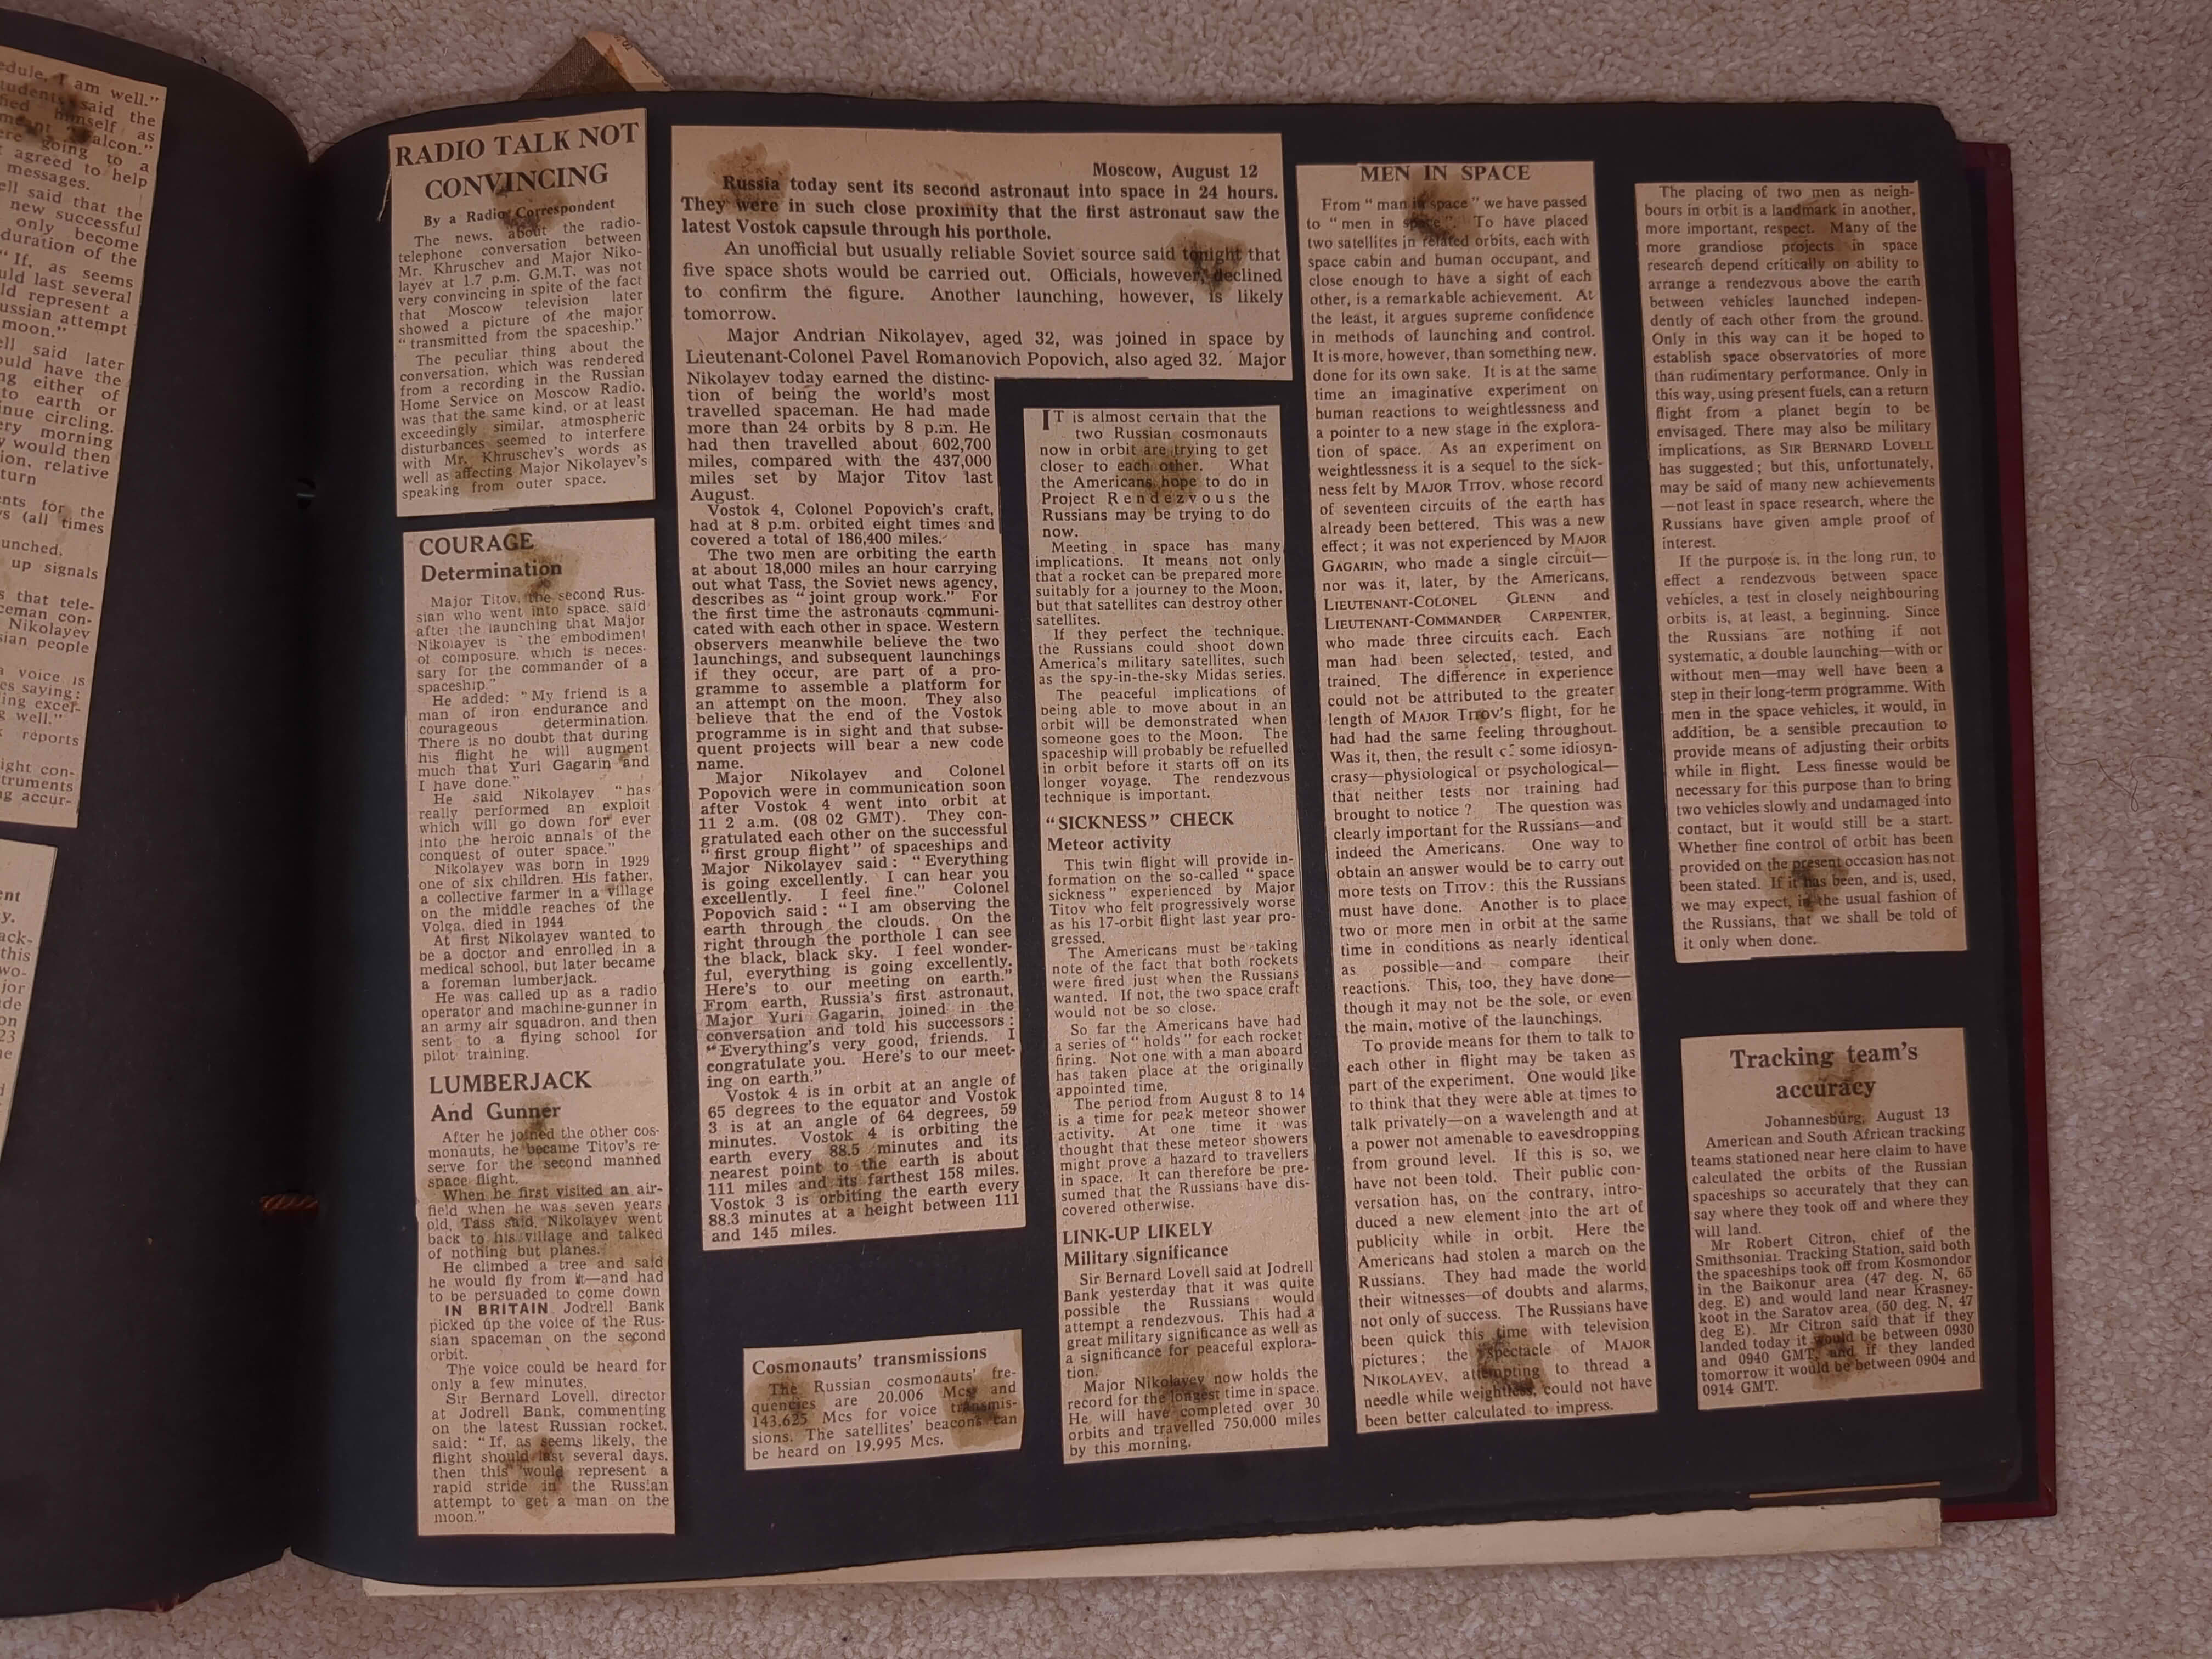 edule, I am well."
tudents said the
himself as
meant "Falcon."
ere going to a
agreed to help
messages.
ell said that the
new successful
only become
duration of the
"If, as seems
uld last several
ld represent a
ussian attempt
moon."
ell said later
ould have the
ng either of
to earth or
nue circling.
ery morning
y would then
ion, relative
turn
nts for the
s (all times
unched,
up signals
s that tele-
ceman con-
Nikolayev
sian people
a voice is
es saying:
ing excel-
g well."
reports
ight con-
truments
g accur-
RADIO TALK NOT
CONVINCING
By a Radio Correspondent
The news, about the radio-
telephone conversation between
Mr. Khruschev and Major Niko-
layev at 1.7 p.m. G.M.T. was not
very convincing in spite of the fact
that Moscow television later
showed a picture of the major
"transmitted from the spaceship."
The peculiar thing about the
conversation, which was rendered
from a recording in the Russian
Home Service on Moscow Radio,
was that the same kind, or at least
exceedingly similar, atmospheric
disturbances seemed to interfere
with Mr. Khruschev's words as
well as affecting Major Nikolayev's
speaking from outer space.
COURAGE
Determination
Major Titov, the second Rus-
sian who went into space, said
after the launching that Major
Nikolayev is "the embodiment
of composure, which is neces-
sary for the commander of a
spaceship."
He added: "My friend is a
man of iron endurance and
courageous determination.
There is no doubt that during
his flight he will augment
much that Yuri Gagarin and
I have done."
He said Nikolayev "has
really performed an exploit
which will go down for ever
into the heroic annals of the
conquest of outer space."
Nikolayev was born in 1929
one of six children. His father,
a collective farmer in a village
on the middle reaches of the
Volga, died in 1944.
At first Nikolayev wanted to
be a doctor and enrolled in a
medical school, but later became
a foreman lumberjack.
He was called up as a radio
operator and machine-gunner in
an army air squadron, and then
sent to a flying school for
pilot training.
LUMBERJACK
And Gunner
After he joined the other cos-
monauts, he became Titov's re-
serve for the second manned
space flight.
When he first visited an air-
field when he was seven years
old, Tass said, Nikolayev went
back to his village and talked
of nothing but planes.
He climbed a tree and said
he would fly from it—and had
to be persuaded to come down
IN BRITAIN Jodrell Bank
picked up the voice of the Rus-
sian spaceman on the second
orbit.
The voice could be heard for
only a few minutes.
Sir Bernard Lovell, director
at Jodrell Bank, commenting
on the latest Russian rocket,
said: "If, as seems likely, the
flight should last several days,
then this would represent a
rapid stride in the Russian
attempt to get a man on the
moon."
Moscow, August 12
Russia today sent its second astronaut into space in 24 hours.
They were in such close proximity that the first astronaut saw the
latest Vostok capsule through his porthole.
An unofficial but usually reliable Soviet source said tonight that
five space shots would be carried out. Officials, however, declined
to confirm the figure. Another launching, however, is likely
tomorrow.
Major Andrian Nikolayev, aged 32, was joined in space by
Lieutenant-Colonel Pavel Romanovich Popovich, also aged 32. Major
Nikolayev today earned the distinc-
tion of being the world's most
travelled spaceman. He had made
more than 24 orbits by 8 p.m. He
had then travelled about 602,700
miles, compared with the 437,000
miles set by Major Titov last
August.
Vostok 4, Colonel Popovich's craft,
had at 8 p.m. orbited eight times and
covered a total of 186,400 miles.
The two men are orbiting the earth
at about 18,000 miles an hour carrying
out what Tass, the Soviet news agency,
describes as "joint group work." For
the first time the astronauts communi-
cated with each other in space. Western
observers meanwhile believe the two
launchings, and subsequent launchings
if they occur, are part of a pro-
gramme to assemble a platform for
an attempt on the moon. They also
believe that the end of the Vostok
programme is in sight and that subse-
quent projects will bear a new code
name.
Major Nikolayev and Colonel
Popovich were in communication soon
after Vostok 4 went into orbit at
11 2 a.m. (08 02 GMT). They con-
gratulated each other on the successful
"first group flight" of spaceships and
Major Nikolayev said: "Everything
is going excellently. I can hear you
excellently. I feel fine." Colonel
Popovich said: "I am observing the
earth through the clouds. On the
right through the porthole I can see
the black, black sky. I feel wonder-
ful, everything is going excellently.
Here's to our meeting on earth."
From earth, Russia's first astronaut,
Major Yuri Gagarin, joined in the
conversation and told his successors:
"Everything's very good, friends. I
congratulate you. Here's to our meet-
ing on earth."
Vostok 4 is in orbit at an angle of
65 degrees to the equator and Vostok
3 is at an angle of 64 degrees, 59
minutes. Vostok 4 is orbiting the
earth every 88.5 minutes and its
nearest point to the earth is about
111 miles and its farthest 158 miles.
Vostok 3 is orbiting the earth every
88.3 minutes at a height between 111
and 145 miles.
Cosmonauts' transmissions
The Russian cosmonauts' fre-
quencies are 20.006 Mcs and
143.625 Mcs for voice transmis-
sions. The satellites' beacons can
be heard on 19.995 Mcs.
IT is almost certain that the
two Russian cosmonauts
now in orbit are trying to get
closer to each other. What
the Americans hope to do in
Project Rendezvous the
Russians may be trying to do
now.
Meeting in space has many
implications. It means not only
that a rocket can be prepared more
suitably for a journey to the Moon,
but that satellites can destroy other
satellites.
If they perfect the technique,
the Russians could shoot down
America's military satellites, such
as the spy-in-the-sky Midas series.
The peaceful implications of
being able to move about in an
orbit will be demonstrated when
someone goes to the Moon. The
spaceship will probably be refuelled
in orbit before it starts off on its
longer voyage. The rendezvous
technique is important.
"SICKNESS" CHECK
Meteor activity
This twin flight will provide in-
formation on the so-called "space
sickness" experienced by Major
Titov who felt progressively worse
as his 17-orbit flight last year pro-
gressed.
The Americans must be taking
note of the fact that both rockets
were fired just when the Russians
wanted. If not, the two space craft
would not be so close.
So far the Americans have had
a series of "holds" for each rocket
firing. Not one with a man aboard
has taken place at the originally
appointed time.
The period from August 8 to 14
is a time for peak meteor shower
activity. At one time it was
thought that these meteor showers
might prove a hazard to travellers
in space. It can therefore be pre-
sumed that the Russians have dis-
covered otherwise.
LINK-UP LIKELY
Military significance
Sir Bernard Lovell said at Jodrell
Bank yesterday that it was quite
possible the Russians would
attempt a rendezvous. This had a
great military significance as well as
a significance for peaceful explora-
tion.
Major Nikolayev now holds the
record for the longest time in space.
He will have completed over 30
orbits and travelled 750,000 miles
by this morning.
MEN IN SPACE
From "man in space" we have passed
to "men in space". To have placed
two satellites in related orbits, each with
space cabin and human occupant, and
close enough to have a sight of each
other, is a remarkable achievement. At
the least, it argues supreme confidence
in methods of launching and control.
It is more, however, than something new.
done for its own sake. It is at the same
time an imaginative experiment on
human reactions to weightlessness and
a pointer to a new stage in the explora-
tion of space. As an experiment on
weightlessness it is a sequel to the sick-
ness felt by MAJOR TITOV, whose record
of seventeen circuits of the earth has
already been bettered. This was a new
effect; it was not experienced by MAJOR
GAGARIN, who made a single circuit—
nor was it, later, by the Americans,
LIEUTENANT-COLONEL GLENN and
LIEUTENANT-COMMANDER CARPENTER,
who made three circuits each. Each
man had been selected, tested, and
trained. The difference in experience
could not be attributed to the greater
length of MAJOR TITOV'S flight, for he
had had the same feeling throughout.
Was it, then, the result of some idiosyn-
crasy—physiological or psychological—
that neither tests nor training had
brought to notice? The question was
clearly important for the Russians—and
indeed the Americans. One way to
obtain an answer would be to carry out
more tests on TITOV: this the Russians
must have done. Another is to place
two or more men in orbit at the same
time in conditions as nearly identical
as possible—and compare their
reactions. This, too, they have done—
though it may not be the sole, or even
the main, motive of the launchings.
To provide means for them to talk to
each other in flight may be taken as
part of the experiment. One would like
to think that they were able at times to
talk privately—on a wavelength and at
a power not amenable to eavesdropping
from ground level. If this is so, we
have not been told. Their public con-
versation has, on the contrary, intro-
duced a new element into the art of
publicity while in orbit. Here the
Americans had stolen a march on the
Russians. They had made the world
their witnesses—of doubts and alarms,
not only of success. The Russians have
been quick this time with television
pictures; the spectacle of MAJOR
NIKOLAYEV, attempting to thread a
needle while weightless, could not have
been better calculated to impress.
The placing of two men as neigh-
bours in orbit is a landmark in another,
more important, respect. Many of the
more grandiose projects in space
research depend critically on ability to
arrange a rendezvous above the earth
between vehicles launched indepen-
dently of each other from the ground.
Only in this way can it be hoped to
establish space observatories of more
than rudimentary performance. Only in
this way, using present fuels, can a return
flight from a planet begin to be
envisaged. There may also be military
implications, as SIR BERNARD LOVELL
has suggested; but this, unfortunately,
may be said of many new achievements
—not least in space research, where the
Russians have given ample proof of
interest.
If the purpose is, in the long run, to
effect a rendezvous between space
vehicles, a test in closely neighbouring
orbits is, at least, a beginning. Since
the Russians are nothing if not
systematic, a double launching—with or
without men—may well have been a
step in their long-term programme. With
men in the space vehicles, it would, in
addition, be a sensible precaution to
provide means of adjusting their orbits
while in flight. Less finesse would be
necessary for this purpose than to bring
two vehicles slowly and undamaged into
contact, but it would still be a start.
Whether fine control of orbit has been
provided on the present occasion has not
been stated. If it has been, and is, used,
we may expect, in the usual fashion of
the Russians, that we shall be told of
it only when done.
Tracking team's
accuracy
Johannesburg, August 13
American and South African tracking
teams stationed near here claim to have
calculated the orbits of the Russian
spaceships so accurately that they can
say where they took off and where they
will land.
Mr Robert Citron, chief of the
Smithsonian Tracking Station, said both
the spaceships took off from Kosmondor
in the Baikonur area (47 deg. N, 65
deg. E) and would land near Krasney-
koot in the Saratov area (50 deg. N, 47
deg E). Mr Citron said that if they
landed today it would be between 0930
and 0940 GMT, and if they landed
tomorrow it would be between 0904 and
0914 GMT.